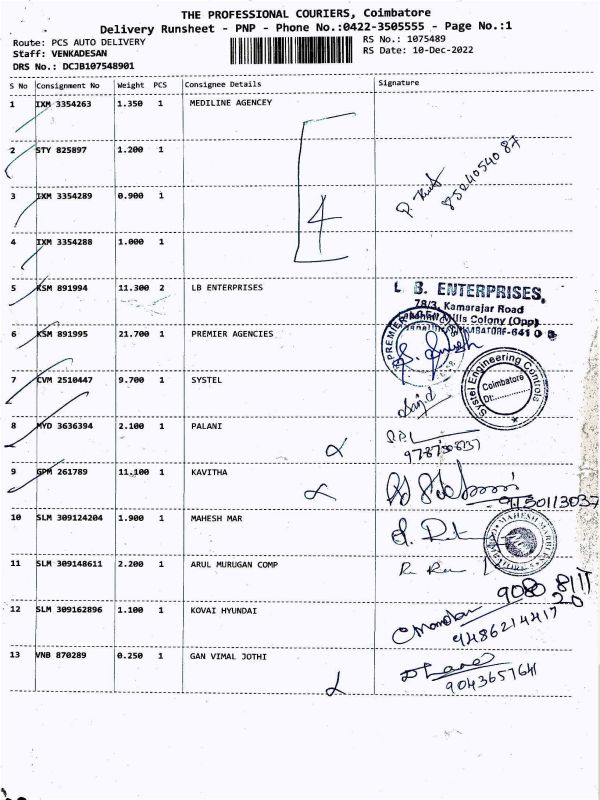 THE PROFESSIONAL COURIERS, Coimbatore
Delivery Runsheet - PNP - Phone No.:0422-3505555 - Page No.:1
Route: PCS AUTO DELIVERY
RS No.: 1075489
Staff: VENKADESAN
RS Date: 10-Dec-2022
DRS No.: DCJB107548901
S No Consignment No Weight PCS Consignee Details Signature
1 IXM 3354263 1.350 1 MEDILINE AGENCEY
2 STY 825897 1.200 1
3 IXM 3354289 0.900 1
8524054087
4
4 IXM 3354288 1.000 1
5 KSM 891994 11.300 2 LB ENTERPRISES
L B. ENTERPRISES,
78/3, Kamarajar Road
6 KSM 891995 21.700 1 PREMIER AGENCIES
7 CVM 2510447 9.700 1 SYSTEL
Systel Engineering Controls
Coimbatore
Dt:
8 MYD 3636394 2.100 1 PALANI
9787308737
9 GPM 261789 11.100 1 KAVITHA
9150113037
10 SLM 309124204 1.900 1 MAHESH MAR
11 SLM 309148611 2.200 1 ARUL MURUGAN COMP
12 SLM 309162896 1.100 1 KOVAI HYUNDAI
9486214417
13 VNB 870289 0.250 1 GAN VIMAL JOTHI
9043657641